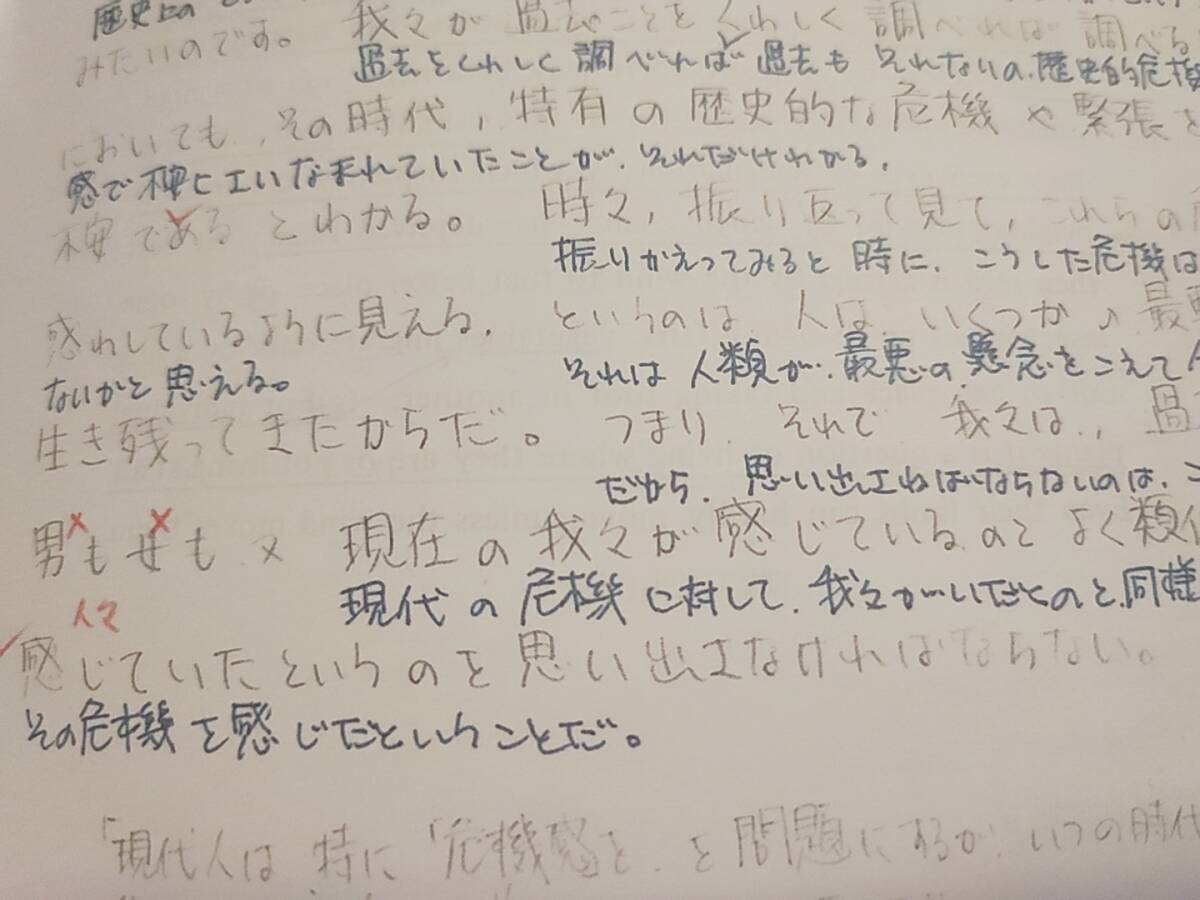 歴史上の
みたいのです。 我々が 過去ことをくわしく調べれば 調べる
過去をくわしく調べれば 過去も それないの、歴史的危機
においても、その時代、特有の歴史的な危機や緊張を
感で いなまれていたことが、それだけわかる、
である とわかる。 時々、振り返って見て、これらの
振りかえってみると 時に、こうした危機は
惑わしているように見える、 というのは、人は、いくつか 最悪
ないかと思える。 それは人類が、最悪の懸念をこえて
生き残ってきたからだ。 つまり、それで 我々は、過
だから、思い出さねばならないのは、こ
男も せも × 現在の我々が感じているのと よく類似
現代の危機に対して、我々がいだくのと、同様
人々
感じていたというのを思い出さなければならない。
その危機を感じだということだ。
「現代人は特に「危機感を、を問題にするが、いつの時代